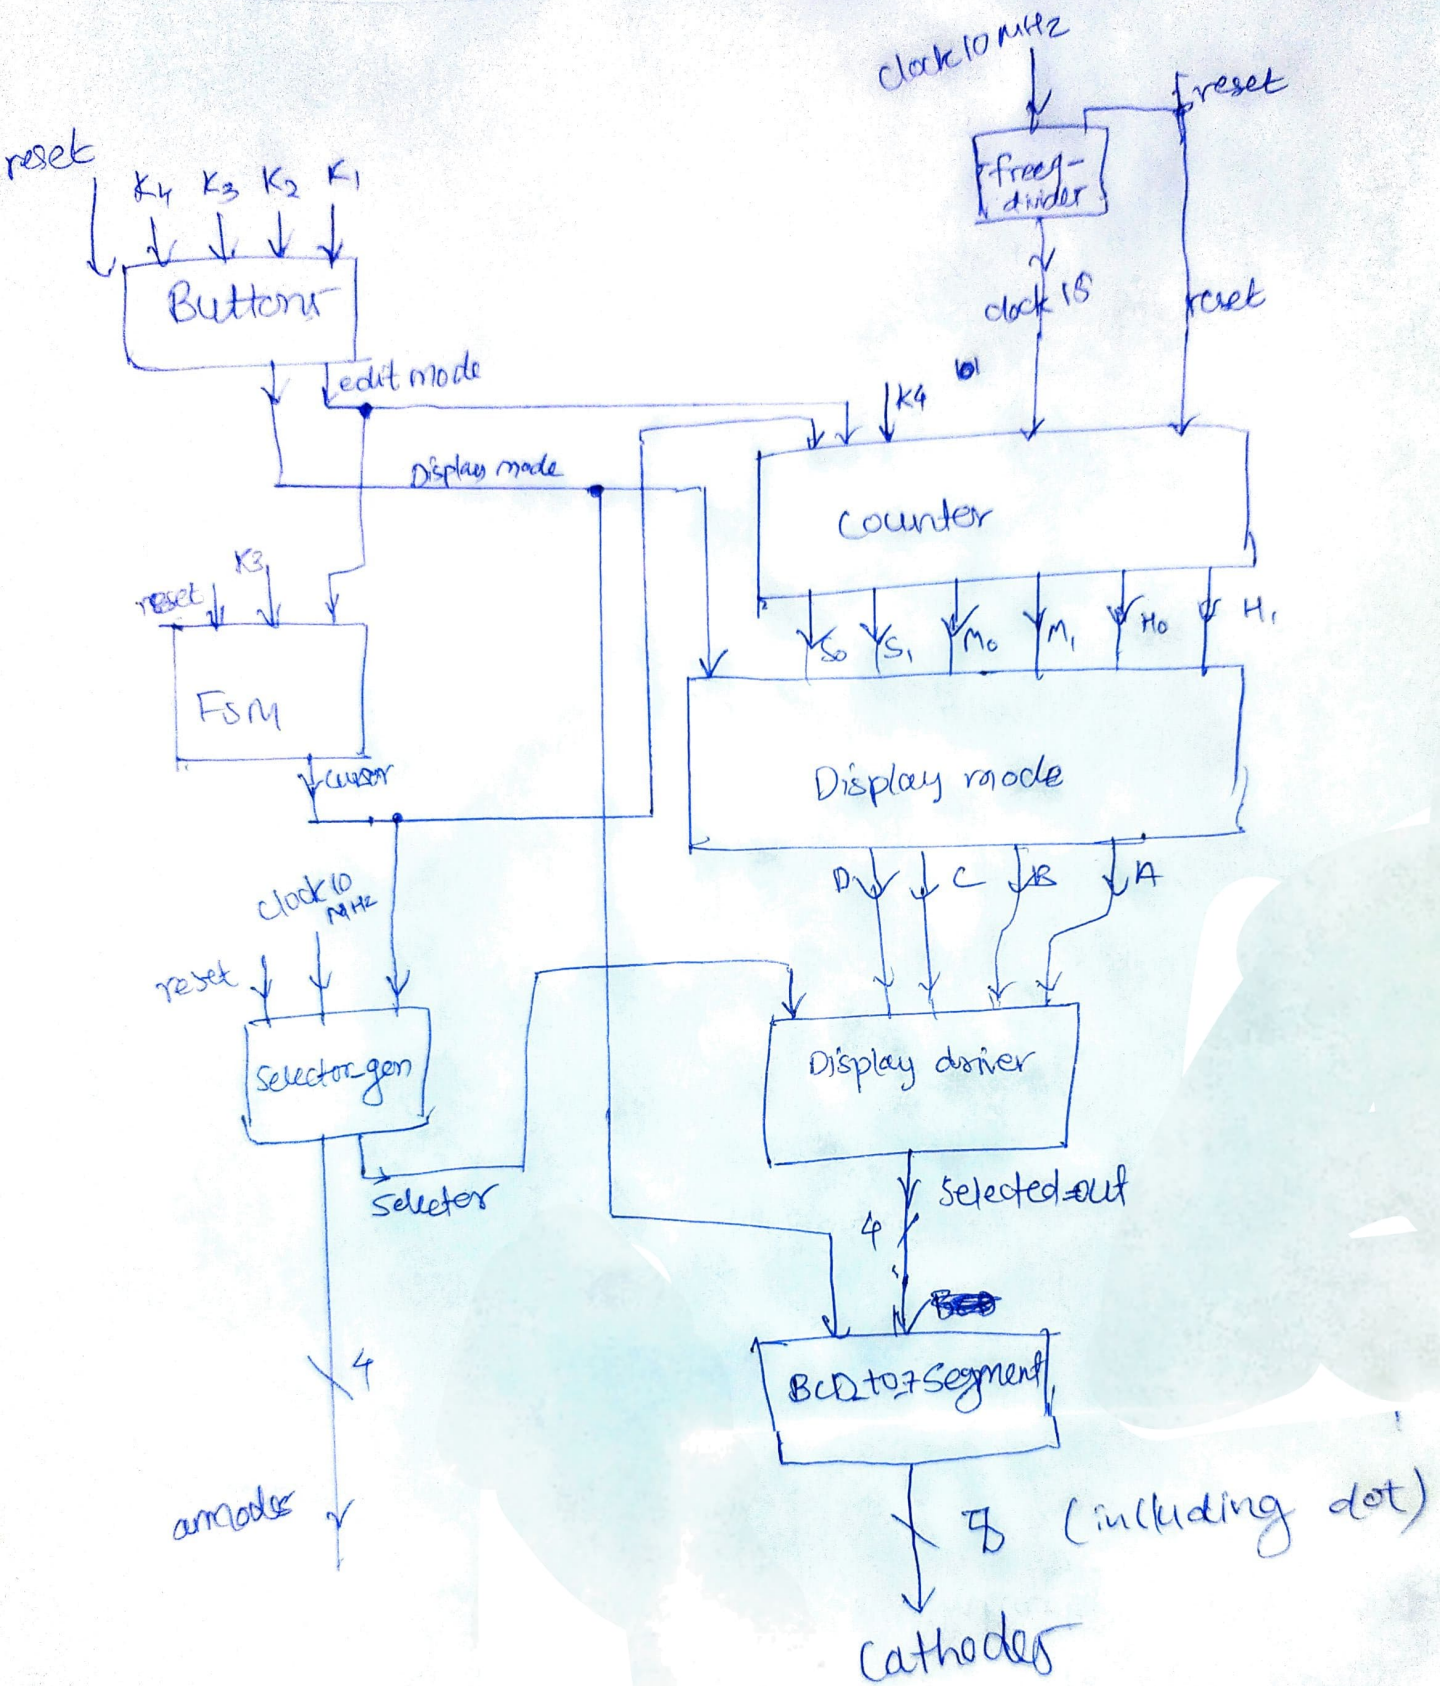 clock 10 MHz
reset
reset
K4 K3 K2 K1
freq-
divider
Buttons
clock 1S
reset
edit mode
K4
Display mode
counter
K3
reset
S0 S1 M0 M1 H0 H1
FSM
cursor
Display mode
clock 10
MHz
D C B A
reset
selector-gen
Display driver
selector
selected-out
4
4
BCD_to_7segment
annodes
8 (including dot)
cathodes